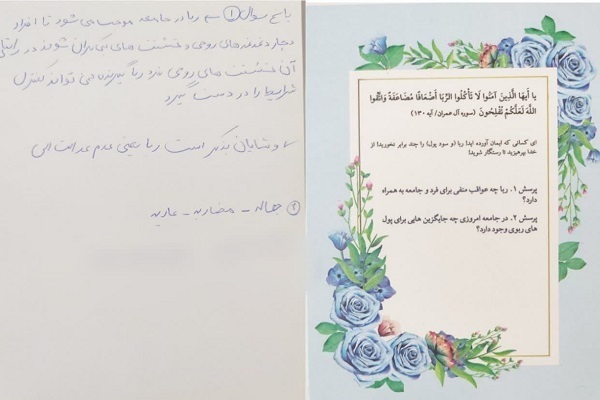 پاسخ سوال ① ربا در جامعه موجب می شود تا افراد
دچار دغدغه های روحی و خشونت های بی کران شوند در
آن خشونت های روحی فرد رباگیرنده می تواند کنترل
شرایط را در دست گیرد
و شایان ذکر است ربا یعنی عدم عدالت الهی
② جعاله - مضاربه - عاریه
یا أیها الَّذِینَ آمَنُوا لَا تَأْکُلُوا الرِّبَا أَضْعَافًا مُضَاعَفَةً وَاتَّقُوا
اللَّهَ لَعَلَّکُمْ تُفْلِحُونَ (سوره آل عمران/ آیه ۱۳۰)
ای کسانی که ایمان آورده اید! ربا (و سود پول) را چند برابر نخورید! از
خدا بپرهیزید تا رستگار شوید!
پرسش ۱. ربا چه عواقب منفی برای فرد و جامعه به همراه
دارد؟
پرسش ۲. در جامعه امروزی چه جایگزین هایی برای پول
های ربوی وجود دارد؟